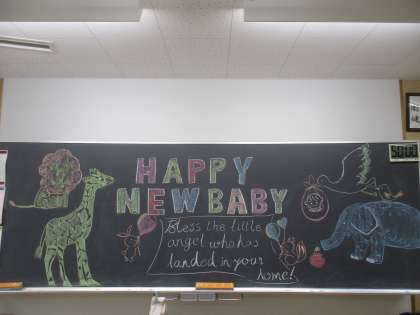 HAPPY
NEW BABY
Bless the little
angel who has
landed in your
home!